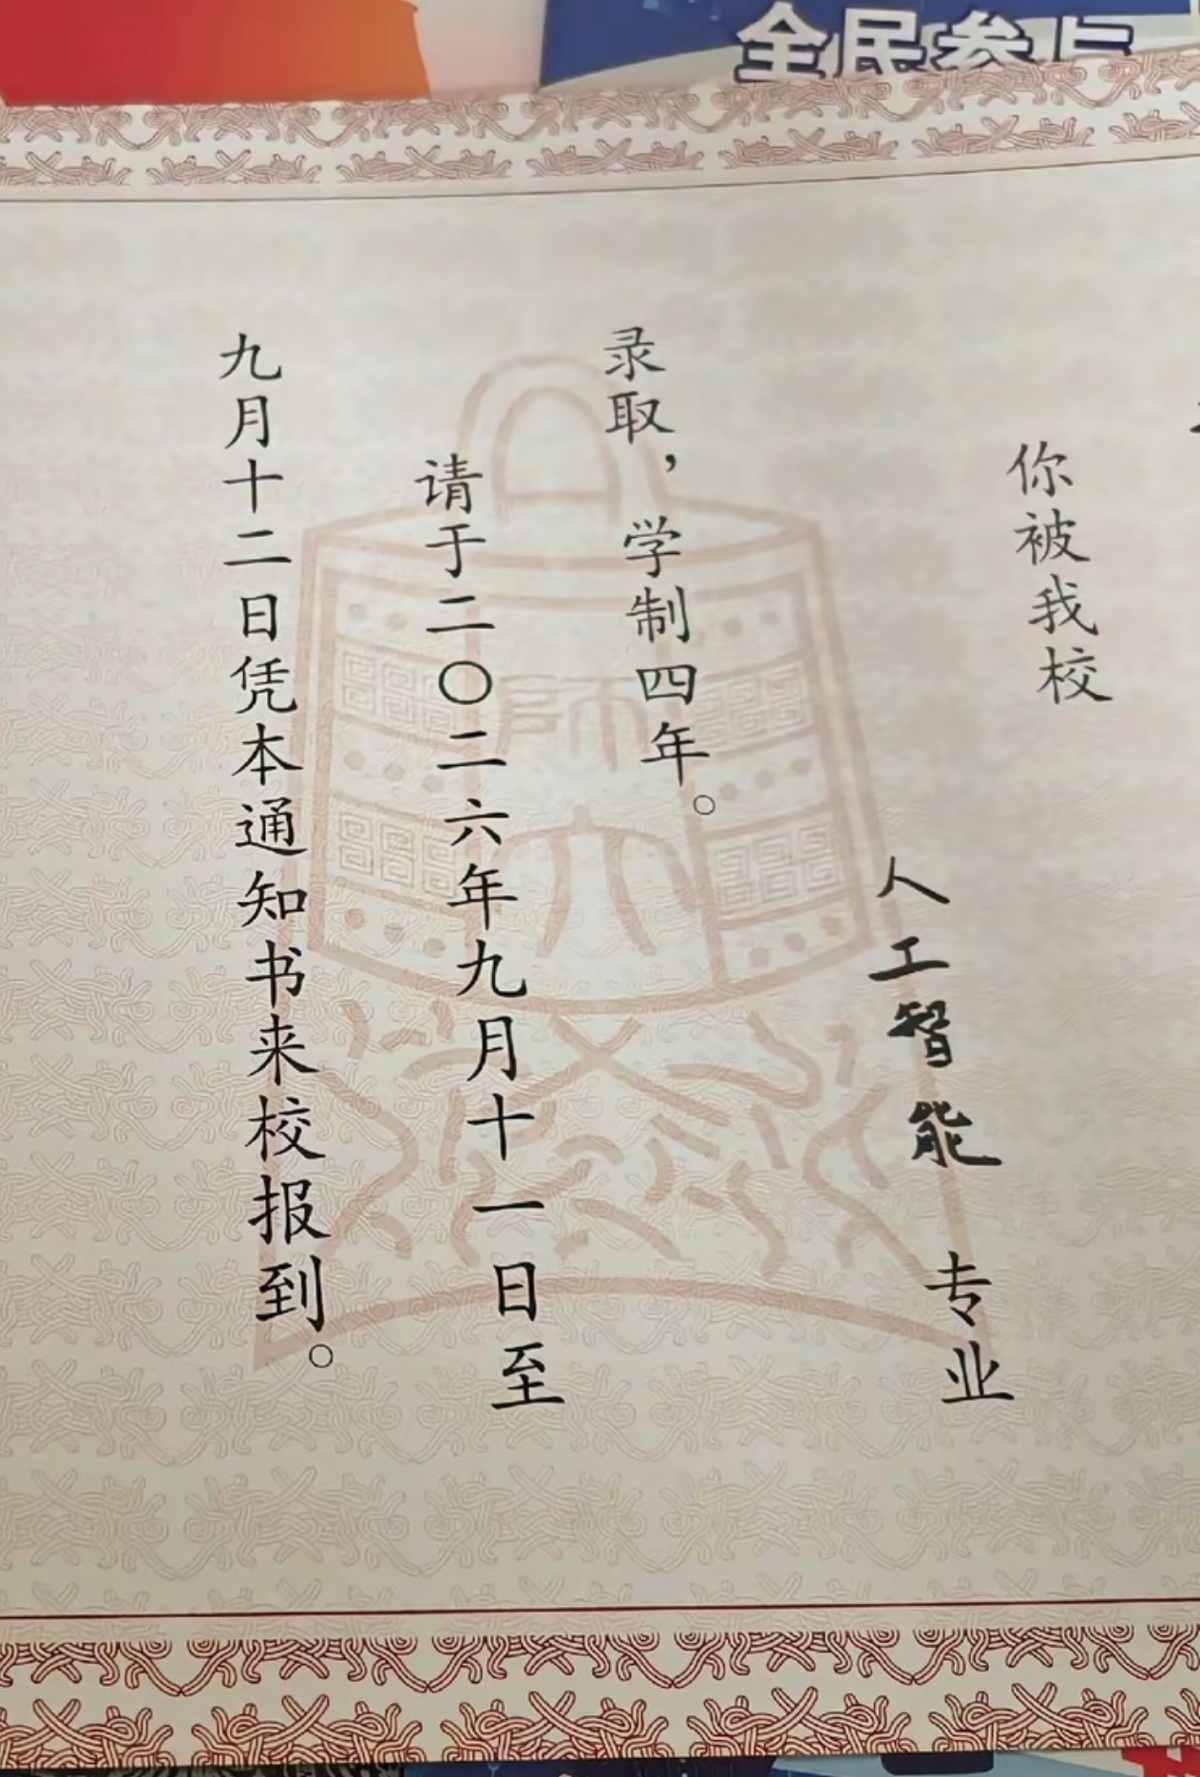 全民参与
你被我校
人工智能 专业
录取，学制四年。
请于二〇二六年九月十一日至
九月十二日凭本通知书来校报到。
师大